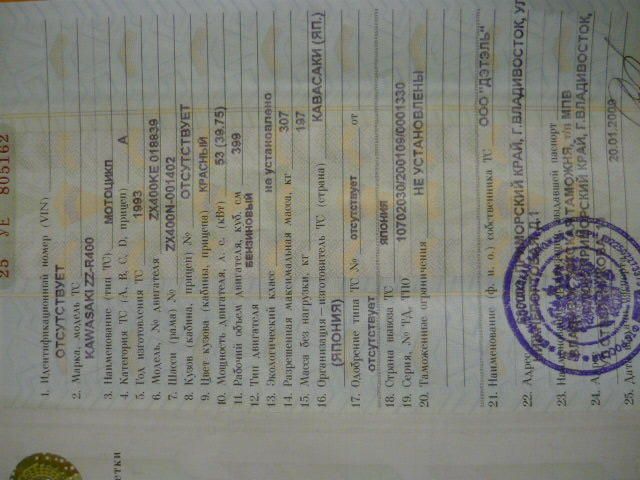 25 УЕ 805162
1. Идентификационный номер (VIN)
ОТСУТСТВУЕТ
2. Марка, модель ТС
KAWASAKI ZZ-R400
3. Наименование (тип ТС) МОТОЦИКЛ
4. Категория ТС (А, В, С, D, прицеп) А
5. Год изготовления ТС 1993
6. Модель, № двигателя ZX400KE 018839
7. Шасси (рама) № ZX400N-001402
8. Кузов (кабина, прицеп) № ОТСУТСТВУЕТ
9. Цвет кузова (кабины, прицепа) КРАСНЫЙ
10. Мощность двигателя, л. с. (кВт) 53 (39,75)
11. Рабочий объем двигателя, куб. см 399
12. Тип двигателя БЕНЗИНОВЫЙ
13. Экологический класс не установлено
14. Разрешенная максимальная масса, кг 307
15. Масса без нагрузки, кг 197
16. Организация – изготовитель ТС (страна) КАВАСАКИ (ЯП.)
(ЯПОНИЯ)
17. Одобрение типа ТС № отсутствует от
отсутствует
18. Страна вывоза ТС ЯПОНИЯ
19. Серия, № ТД, ТПО 10702030/200109/0001330
20. Таможенные ограничения НЕ УСТАНОВЛЕНЫ
21. Наименование (ф. и. о.) собственника ТС ООО "ДЭТЭЛЬ"
22. КРАЙ, Г.ВЛАДИВОСТОК,
23. выдавшей паспорт
ТАМОЖНЯ, т/п МПВ
24. КРАЙ, Г.ВЛАДИВОСТОК,
25. 20.01.2009
етки